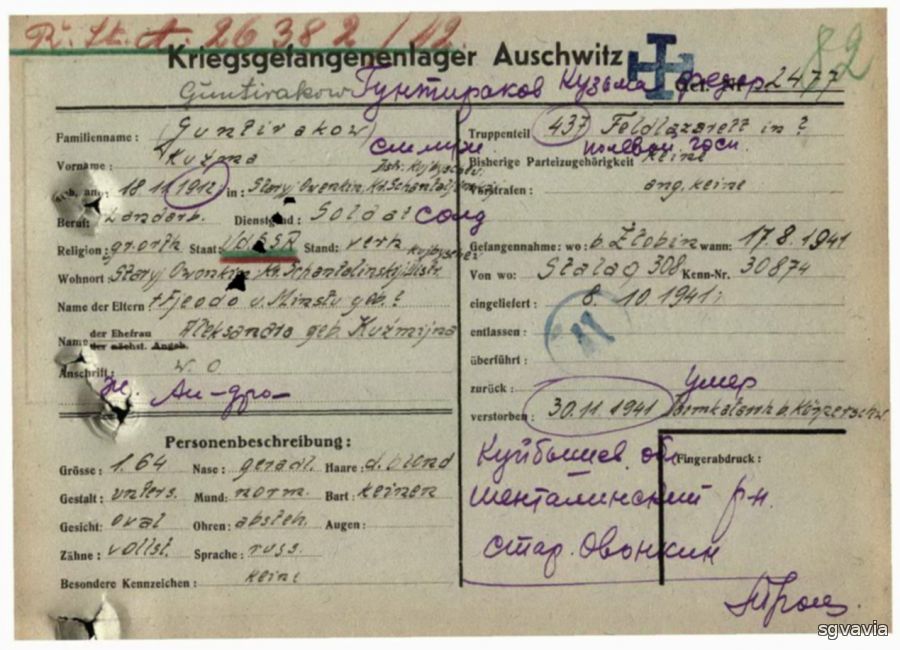 R. St. A. 26382/42.
Kriegsgefangenenlager Auschwitz
82
Guntirakow Гунтираков Кузьма Федор
Gef. Nr 2477
Familienname: (Guntirakow)
Vorname: Kuźma
Geb. am: 18 11 1912 in: Staryj Owonkin, Kr. Schantalinskij
Beruf: Landarb. Dienstgrad: Soldat солд
Religion: gr. orth. Staat: UdSSR Stand: verh.
Wohnort: Staryj Owonkin Kr. Schantalinskij
Name der Eltern: + Fjeodo u. geb. ?
Name der Ehefrau Aleksandra geb. Kuźmijna
der nächst. Angeh.
Anschrift: w. o
Ал-дра
Personenbeschreibung:
Grösse: 1.64 Nase: geradl. Haare: d. blond
Gestalt: unters. Mund: norm. Bart: keinen
Gesicht: oval Ohren: absteh. Augen:
Zähne: vollst. Sprache: russ.
Besondere Kennzeichen: keine
Truppenteil 437 Feldlazarett in ?
полевой госп.
Bisherige Parteizugehörigkeit keine
Vorstrafen: ang. keine
Gefangennahme: wo: b. Zlobin wann: 17.8.1941
Von wo: Stalag 308 Kenn-Nr. 30874
eingeliefert: 8. 10. 1941
entlassen:
überführt:
zurück: умер
verstorben: 30.11 1941
Куйбышев. об
Fingerabdruck:
Шенталинский р-н.
стар. Овонкин
sgvavia